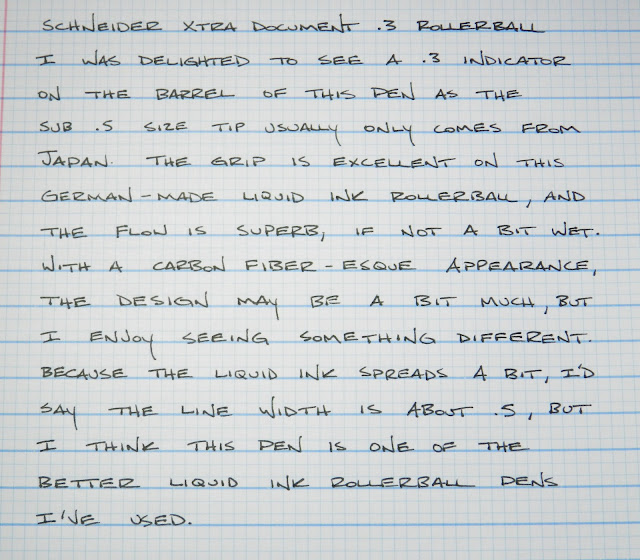 SCHNEIDER XTRA DOCUMENT .3 ROLLERBALL
I WAS DELIGHTED TO SEE A .3 INDICATOR
ON THE BARREL OF THIS PEN AS THE
SUB .5 SIZE TIP USUALLY ONLY COMES FROM
JAPAN. THE GRIP IS EXCELLENT ON THIS
GERMAN-MADE LIQUID INK ROLLERBALL, AND
THE FLOW IS SUPERB, IF NOT A BIT WET.
WITH A CARBON FIBER-ESQUE APPEARANCE,
THE DESIGN MAY BE A BIT MUCH, BUT
I ENJOY SEEING SOMETHING DIFFERENT.
BECAUSE THE LIQUID INK SPREADS A BIT, I'D
SAY THE LINE WIDTH IS ABOUT .5, BUT
I THINK THIS PEN IS ONE OF THE
BETTER LIQUID INK ROLLERBALL PENS
I'VE USED.